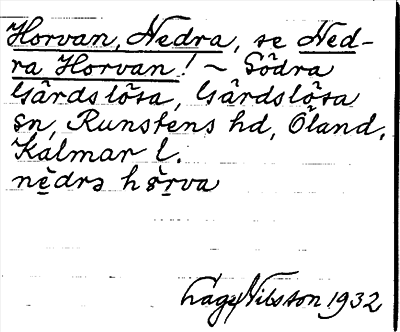 Horvan, Nedra, se Ned-
ra Horvan! ~ Södra
Gärdslösa, Gärdslösa
sn, Runstens hd, Öland,
Kalmar l.
nẹdrə hɷ̈rva
Nilsson 1932